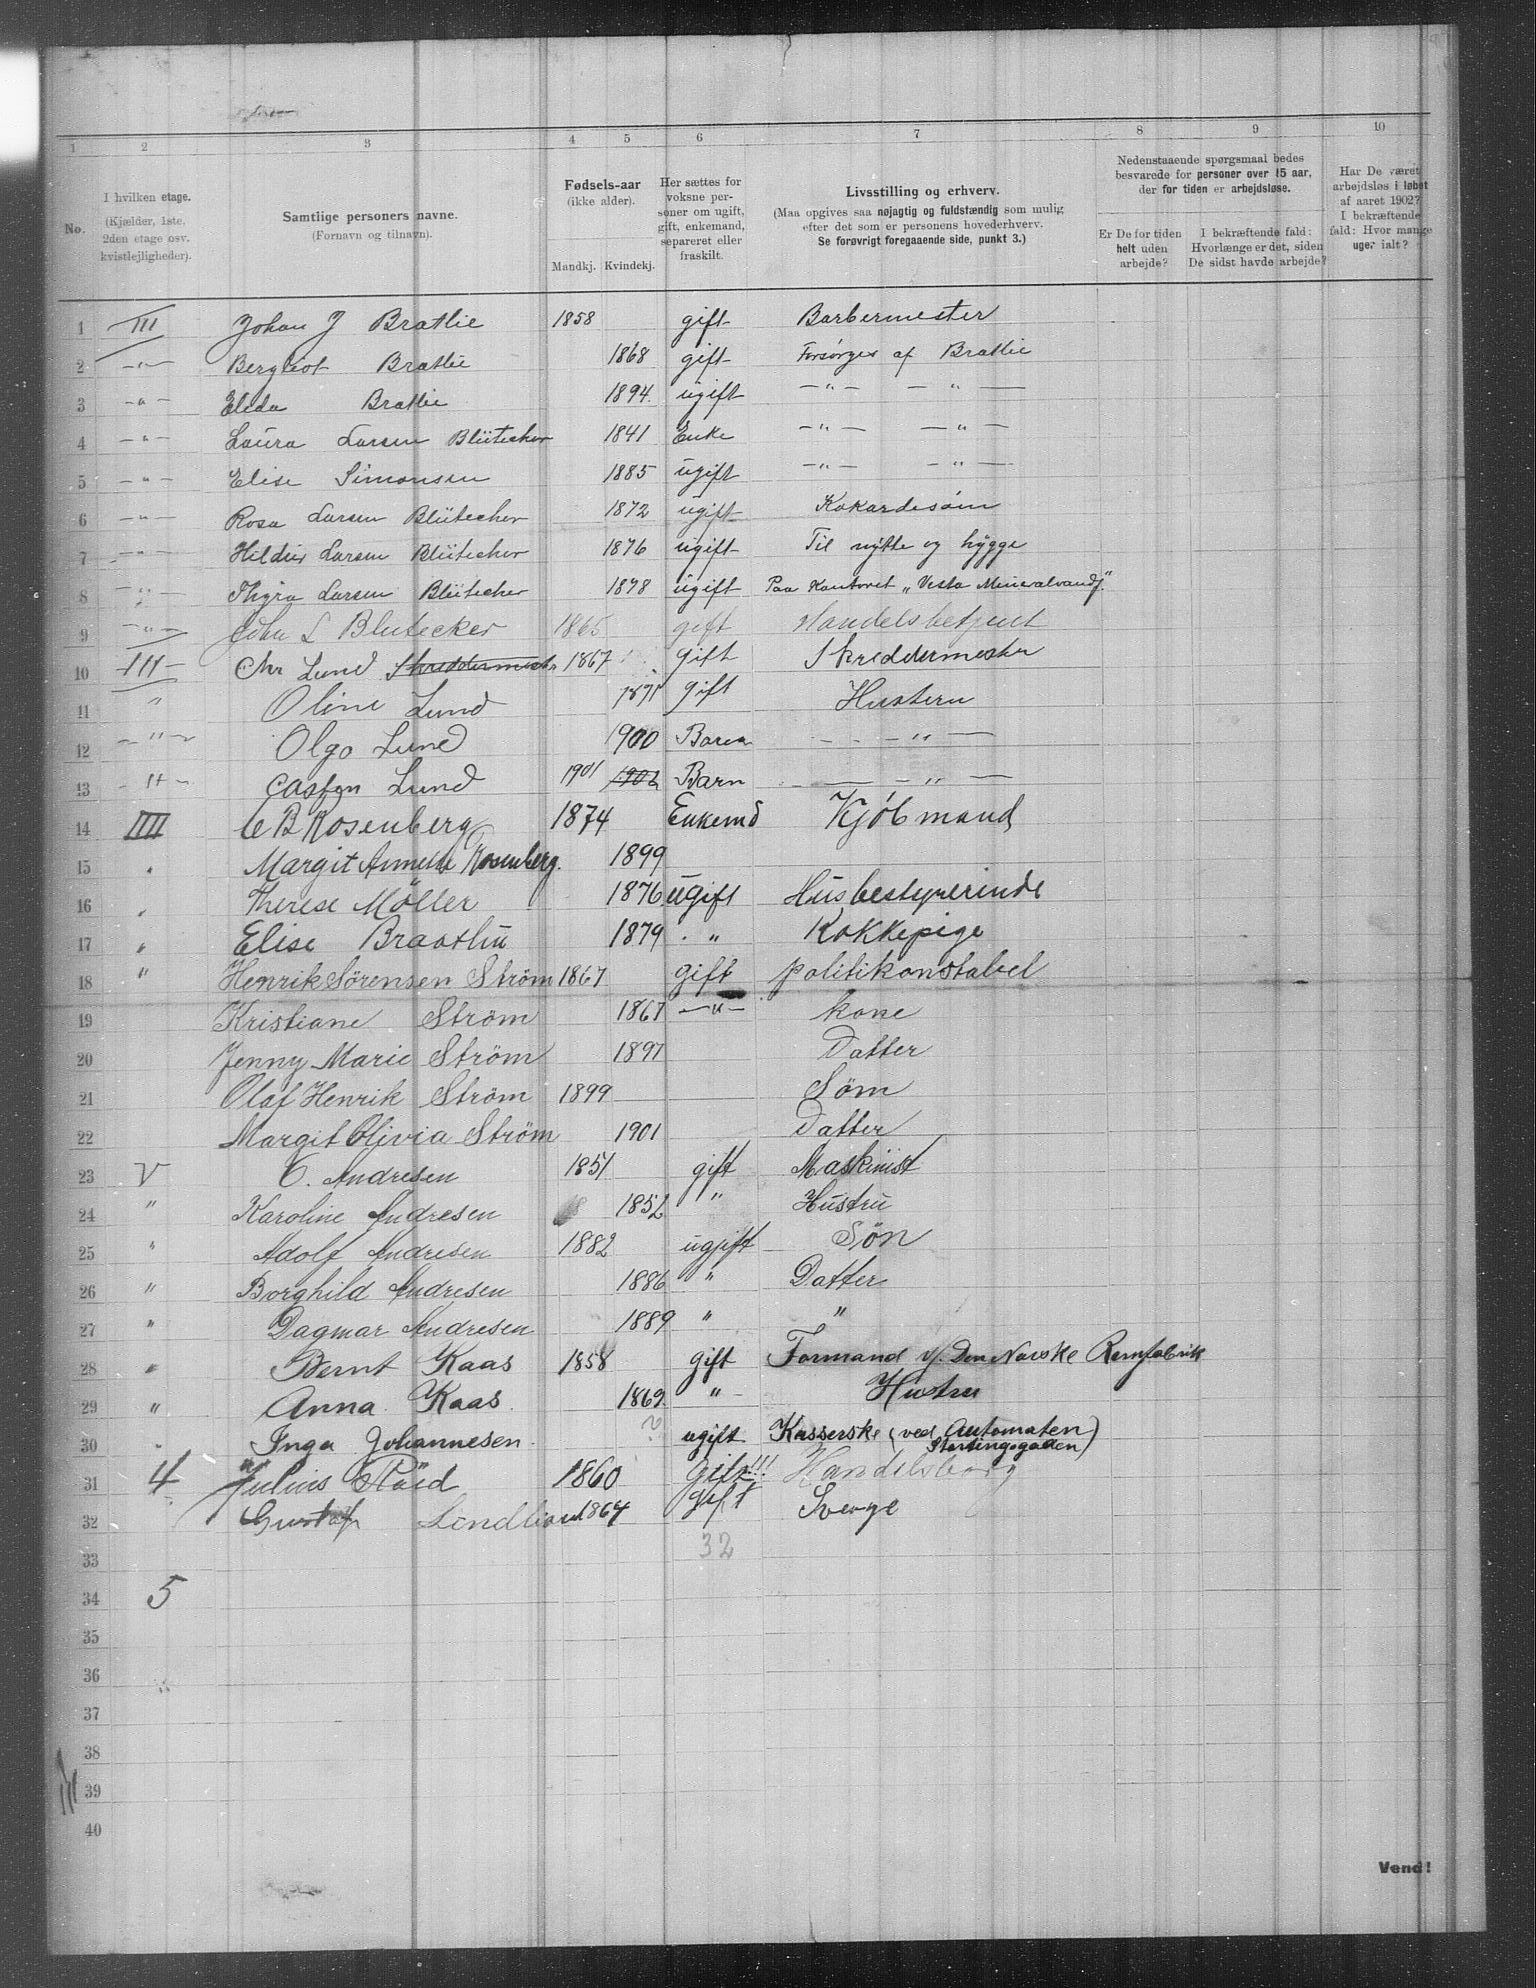 1 2 3 4 5 6 7 8 9 10
No.
I hvilken etage.
(Kjælder, 1ste,
2den etage osv.
kvistlejligheder).
Samtlige personers navne.
(Fornavn og tilnavn).
Fødsels-aar
(ikke alder).
Mandkj. Kvindekj.
Her sættes for
voksne per-
soner om ugift,
gift, enkemand,
separeret eller
fraskilt.
Livsstilling og erhverv.
(Maa opgives saa nøjagtig og fuldstændig som mulig
efter det som er personens hovederhverv.
Se forøvrigt foregaaende side, punkt 3.)
Nedenstaaende spørgsmaal bedes
besvarede for personer over 15 aar,
der for tiden er arbejdsløse.
Er De for tiden
helt uden
arbejde?
I bekræftende fald:
Hvorlænge er det, siden
De sidst havde arbejde?
Har De været
arbejdsløs i løbet
af aaret 1902?
I bekræftende
fald: Hvor mange
uger ialt?
1 III Johan J Bratlie 1858 gift Barbermester
2 —"— Bergliot Bratlie 1868 gift Forsørges af Bratlie
3 —"— Elida Bratlie 1894 ugift —"— —"—
4 —"— Laura Larsen Blütecher 1841 Enke —"— —"—
5 —"— Elise Simonsen 1885 ugift —"— —"—
6 —"— Rosa Larsen Blütecher 1872 ugift Kokardesøm
7 —"— Hildur Larsen Blütecher 1876 ugift Til nytte og hygge
8 —"— Thyra Larsen Blütecher 1878 ugift Paa Kontoret „Vesta Mineralvandf."
9 —"— John L Blutecker 1865 gift Handelsbetjent
10 III Chr Lund Skreddermestr 1867 gift Skreddermester
11 " Oline Lund 1871 gift Hustern
12 —"— Olga Lund 1900 Baren — — —"—
13 —"— Casten Lund 1901 1902 Barn — —"—
14 IIII C B Rosenberg 1874 Enkemd Kjøbmand
15 " Margit Annette Rosenberg. 1899
16 " Therese Möller 1876 ugift Husbestyrerinde
17 " Elise Braathu 1879 " Kokkepige
18 " Henrik Sörensen Ström 1867 gift politikonstabel
19 Kristiane Ström 1867 —"— kone
20 Jenny Marie Ström 1897 Datter
21 Olaf Henrik Ström 1899 Söm
22 Margit Olivia Ström 1901 Datter
23 V C. Andresen 1851 gift Maskinist
24 " Karoline Andresen 1852 " Hustru
25 " Adolf Andresen 1882 ugift Sön
26 " Borghild Andresen 1886 " Datter
27 " Dagmar Andresen 1889 " "
28 " Bernt Kaas 1858 gift Formand v/. Den Norske Remfabrik
29 " Anna Kaas 1869 " Hustru
30 " Inga Johannesen ? ugift Kasserske (ved Automaten
Stortingsgaden)
31 4 Julius 1860 Gift!!! Handelsborg
32 Gustaf 1864 gift Sverge
33 32
34 5
35
36
37
38
39
40
Vend!